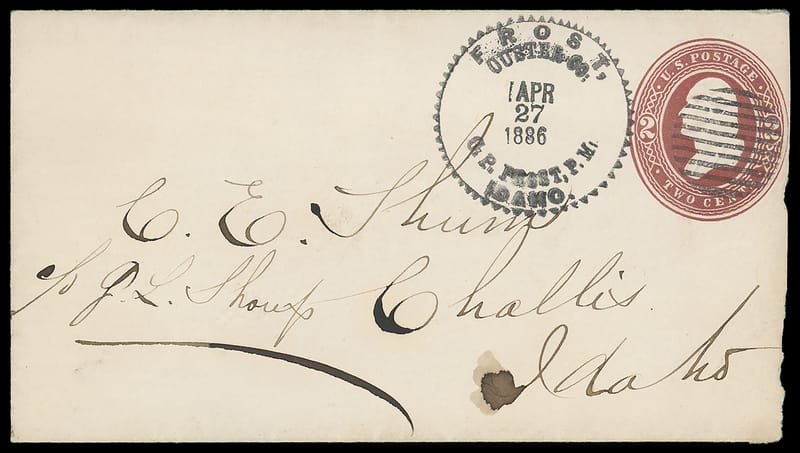 FROST,
CUSTER CO,
APR
27
1886
G.P. FROST, P.M.
IDAHO.
U.S. POSTAGE
2 2
TWO CENTS
C. E.
c/o J. L. Shoup Challis
Idaho